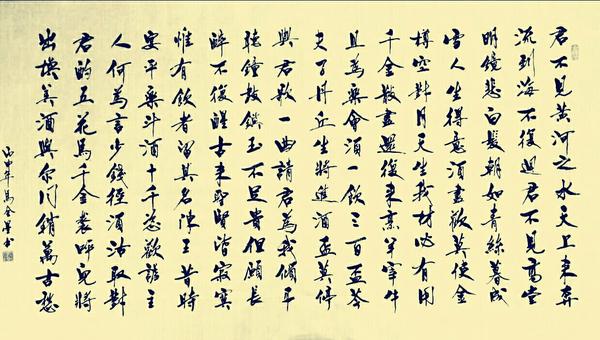 君不見黃河之水天上來奔
流到海不復迴君不見高堂
明鏡悲白髮朝如青絲暮成
雪人生得意須盡歡莫使金
樽空對月天生我材必有用
千金散盡還復來烹羊宰牛
且為樂會須一飲三百盃岑
夫子丹丘生將進酒盃莫停
與君歌一曲請君為我傾耳
聽鐘鼓饌玉不足貴但願長
醉不復醒古來聖賢皆寂寞
惟有飲者留其名陳王昔時
宴平樂斗酒十千恣歡謔主
人何為言少錢徑須沽取對
君酌五花馬千金裘呼兒將
出換美酒與爾同銷萬古愁
丙申年 書